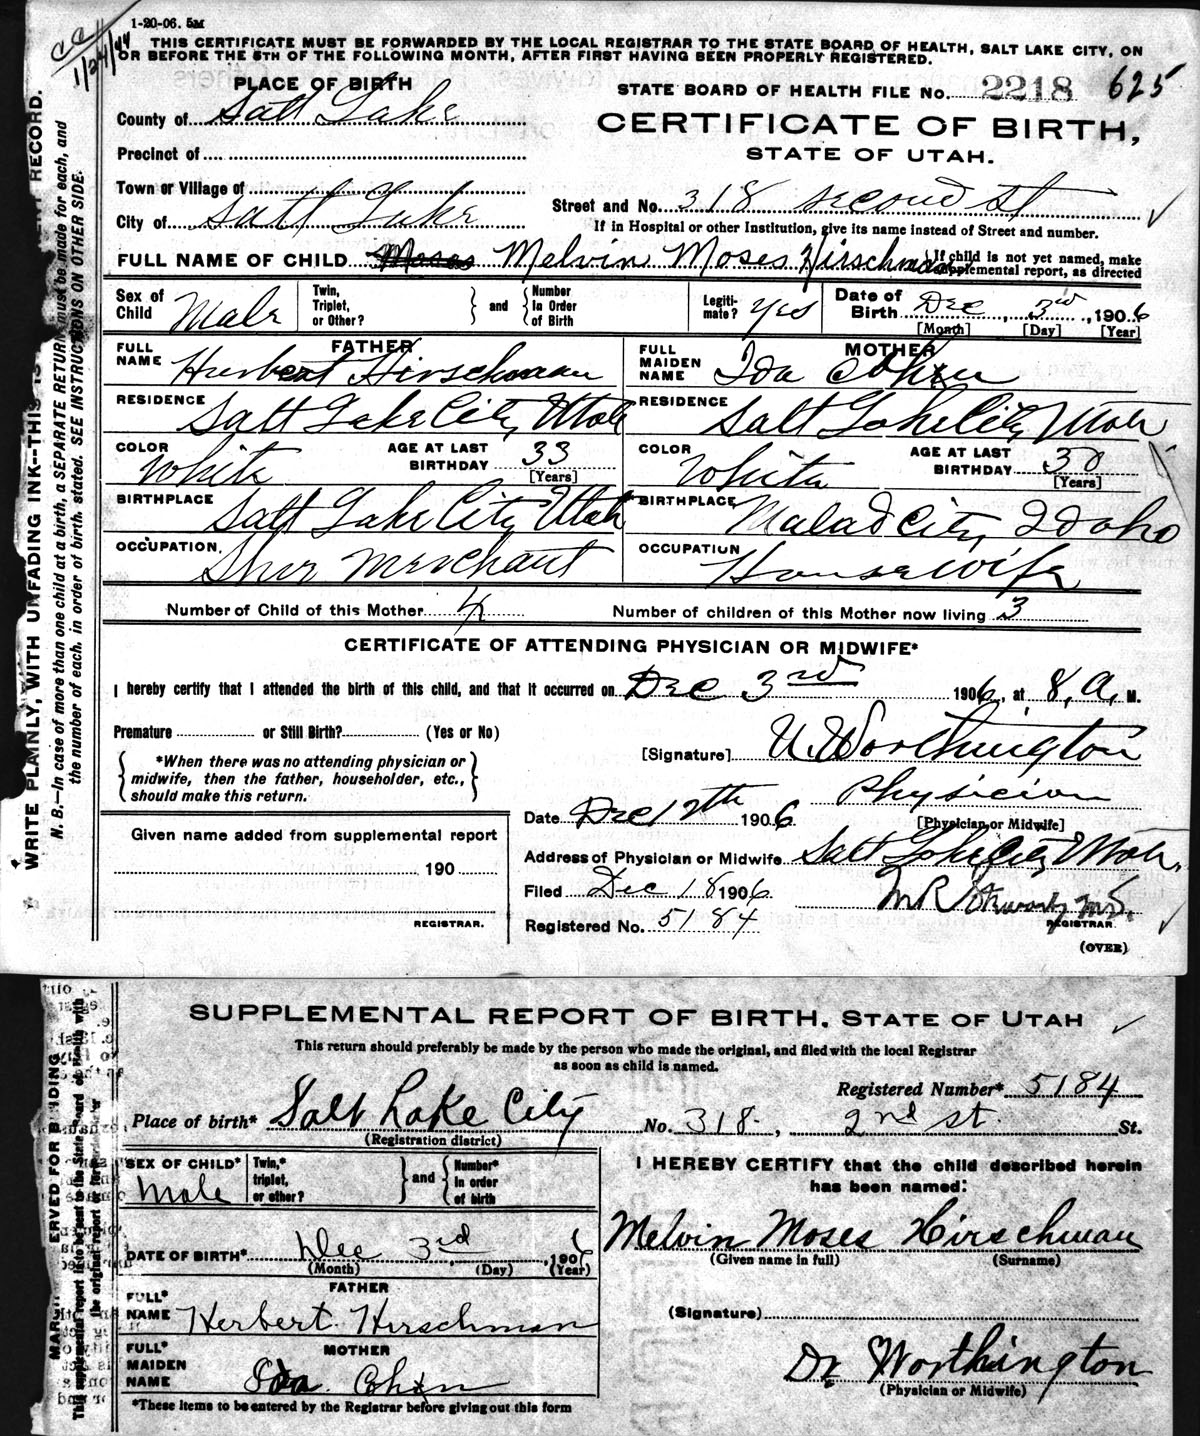 1-20-06. 5M
CC
1/24/44
THIS CERTIFICATE MUST BE FORWARDED BY THE LOCAL REGISTRAR TO THE STATE BOARD OF HEALTH, SALT LAKE CITY, ON
OR BEFORE THE 5TH OF THE FOLLOWING MONTH, AFTER FIRST HAVING BEEN PROPERLY REGISTERED.
PLACE OF BIRTH
STATE BOARD OF HEALTH FILE No. 2218 625
County of Salt Lake
CERTIFICATE OF BIRTH,
STATE OF UTAH.
Precinct of
Town or Village of
City of Salt Lake
Street and No. 318 second st
If in Hospital or other Institution, give its name instead of Street and number.
FULL NAME OF CHILD Moses Melvin Moses Hirschman
If child is not yet named, make
supplemental report, as directed
Sex of Child Male
Twin, Triplet, or Other? and Number In Order of Birth
Legitimate? Yes
Date of Birth Dec 3rd, 1906
[Month] [Day] [Year]
FATHER
FULL NAME Herbert Hirschman
RESIDENCE Salt Lake City, Utah
COLOR White
AGE AT LAST BIRTHDAY 33
[Years]
BIRTHPLACE Salt Lake City Utah
OCCUPATION, Shoe Merchant
MOTHER
FULL MAIDEN NAME Ida Cohn
RESIDENCE Salt Lake City, Utah
COLOR White
AGE AT LAST BIRTHDAY 30
[Years]
BIRTHPLACE Malad City, Idaho
OCCUPATION Housewife
Number of Child of this Mother 4
Number of children of this Mother now living 3
CERTIFICATE OF ATTENDING PHYSICIAN OR MIDWIFE*
I hereby certify that I attended the birth of this child, and that it occurred on Dec 3rd 1906, at 8. A. M.
Premature or Still Birth? (Yes or No)
*When there was no attending physician or
midwife, then the father, householder, etc.,
should make this return.
[Signature] U. Worthington
Physician
[Physician or Midwife]
Date Dec 12th 1906
Given name added from supplemental report
190
REGISTRAR.
Address of Physician or Midwife Salt Lake City Utah.
Filed Dec 18 1906
Registered No. 5184
REGISTRAR
(OVER)
WRITE PLAINLY, WITH UNFADING INK--THIS IS
RECORD.
N. B.—In case of more than one child at a birth, a SEPARATE RETURN must be made for each, and
the number of each, in order of birth, stated. SEE INSTRUCTIONS ON OTHER SIDE.
SUPPLEMENTAL REPORT OF BIRTH. STATE OF UTAH
This return should preferably be made by the person who made the original, and filed with the local Registrar
as soon as child is named.
Registered Number* 5184
Place of birth* Salt Lake City No. 318, 2nd st. St.
(Registration district)
SEX OF CHILD* Male
Twin,* triplet, or other? and Number* in order of birth
DATE OF BIRTH* Dec 3rd, 1906
(Month) (Day) (Year)
FATHER
FULL* NAME Herbert Hirschman
MOTHER
FULL* MAIDEN NAME Ida Cohn
*These items to be entered by the Registrar before giving out this form
I HEREBY CERTIFY that the child described herein
has been named:
Melvin Moses Hirschman
(Given name in full) (Surname)
(Signature)
Dr. Worthington
(Physician or Midwife)